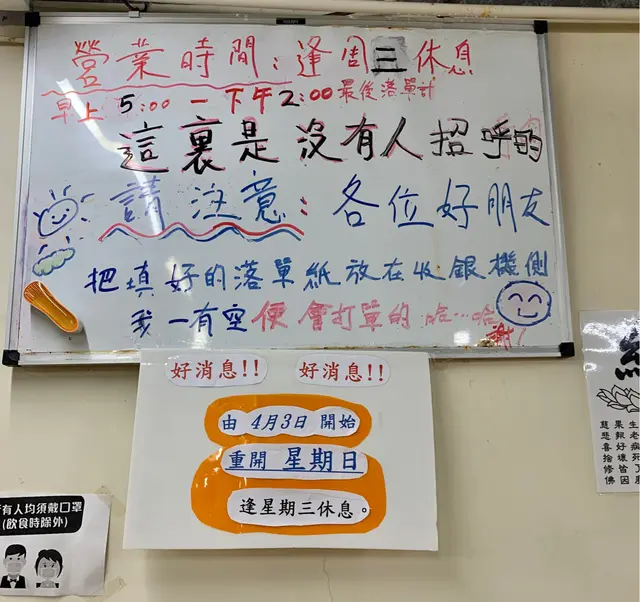 營業時間：逢周三休息
早上5:00一下午2:00最後落單計
這裏是沒有人招呼的
請注意：各位好朋友
把填好的落單紙放在收銀機側
我一有空便會打單的 哈…哈
謝！
好消息!! 好消息!!
由 4月3日 開始
重開 星期日
逢星期三休息。
有人均須戴口罩
(飲食時除外)